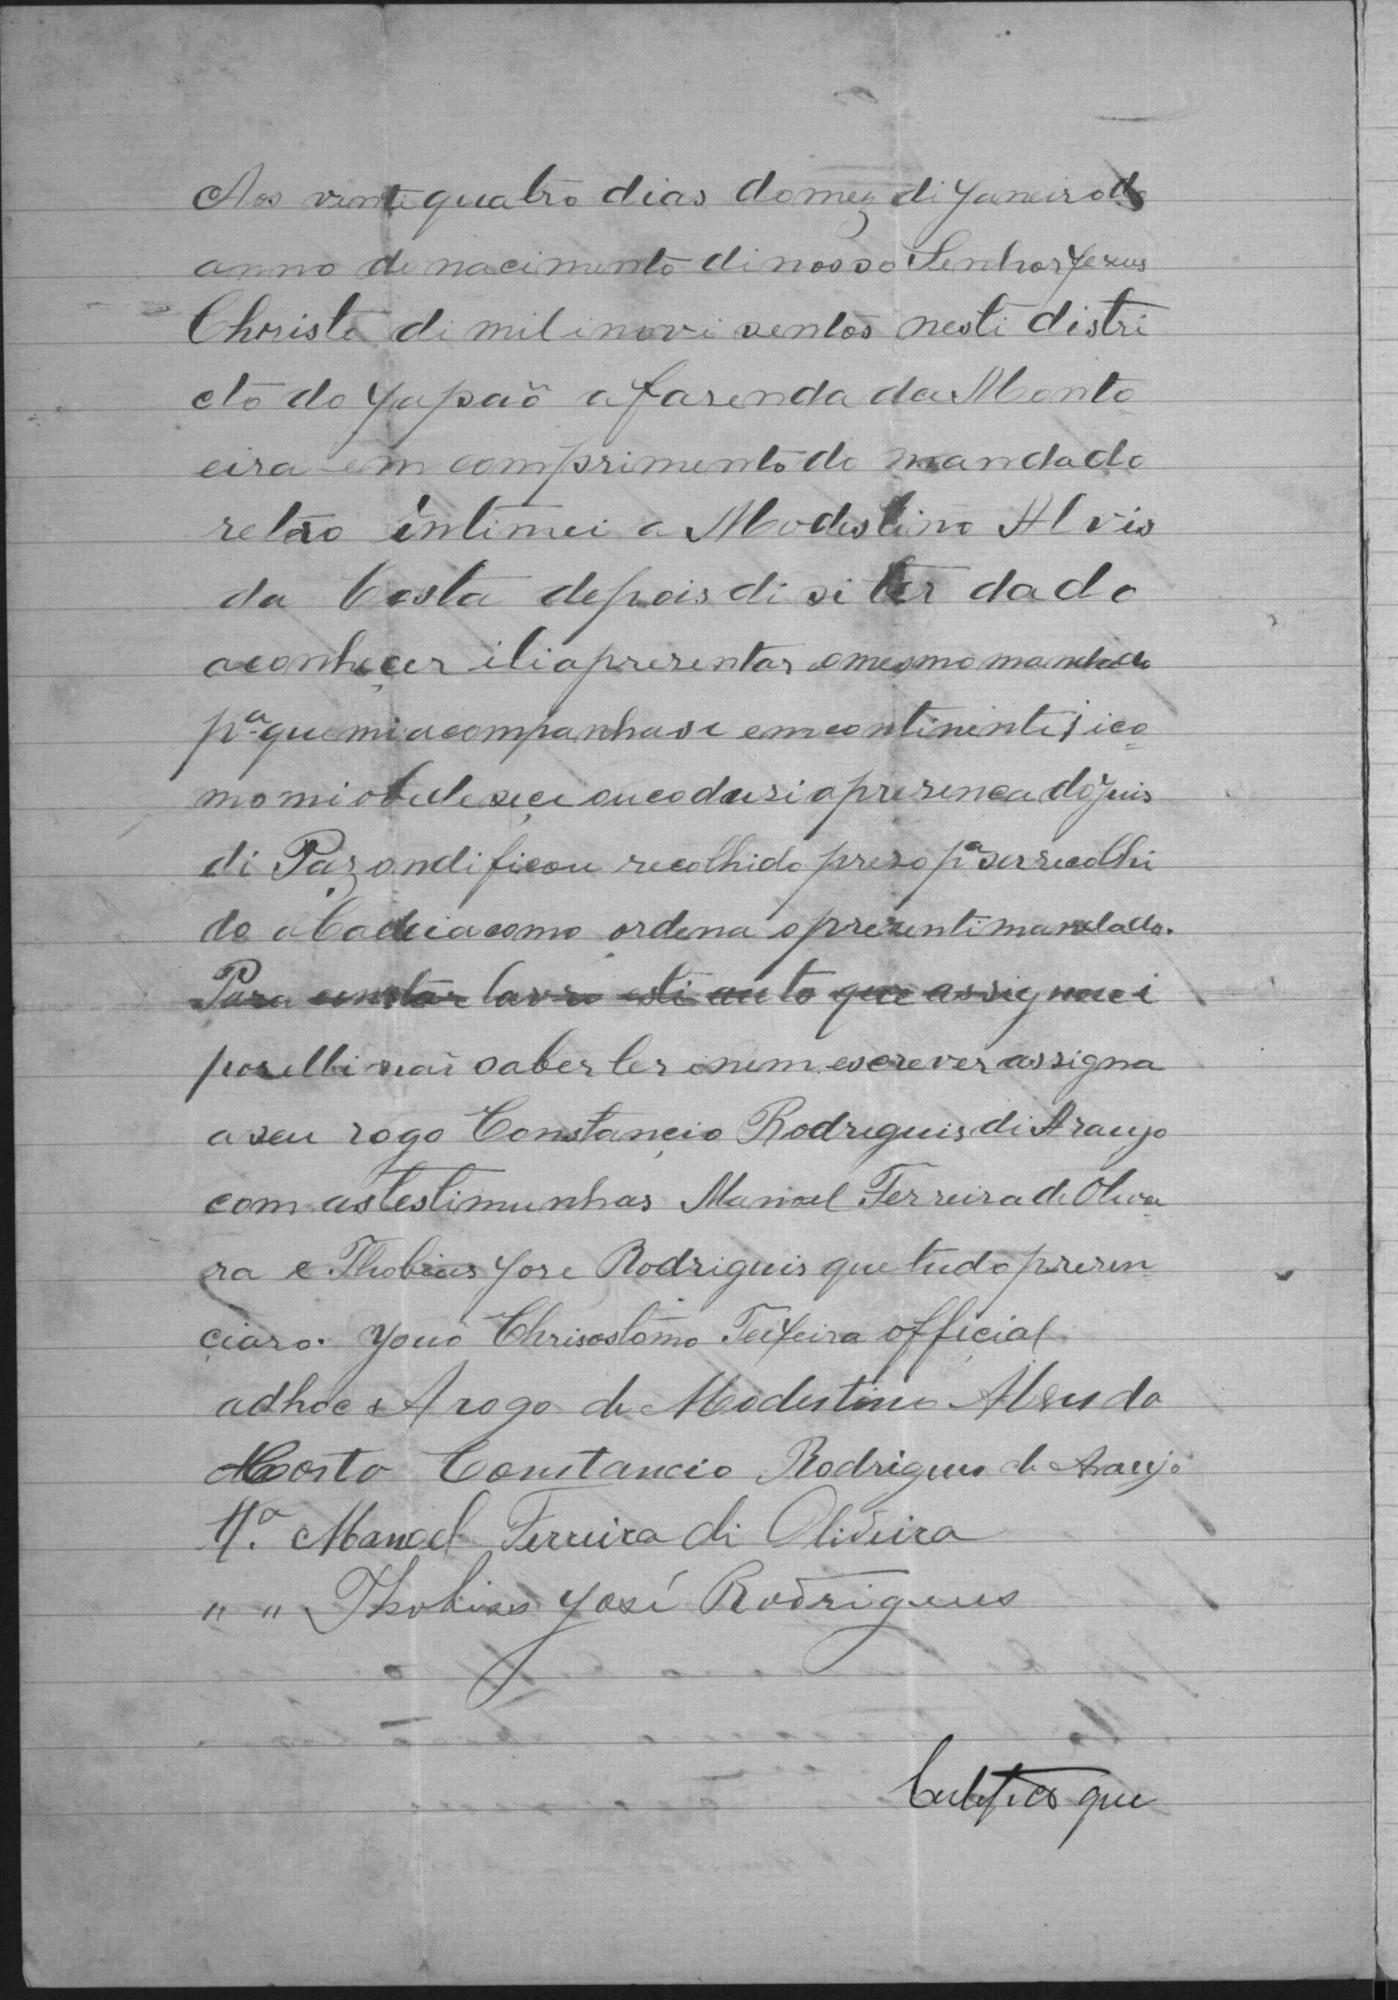 Aos vinte quatro dias do mez di Janeiro do
anno de nacimento di nosso Senhor Jezus
Christo di mil i novi sentos nesti distri
cto do Japaõ a fazenda da Monto
eira em comprimento do mandado
retro intimei a Modestino Alvis
da Costa depois di si ter dado
a conheçer i li aprezentar o mesmo mandado
pª que mi acompanhasi em continenti, i co
mo mi obedeseçe ou coduzi a prezenca do Juis
di Paz ondi ficou recolhido prezo pª ser recolhi
do a Cadeia como ordena o prezenti mandado.
Para constar lavro esti auto que assignei
por elli naõ saber ler i nem escrever assigna
a seu rogo Constançio Rodriguis di Araujo
com as testimunhas Manoel Ferreira de Olivei
ra e Thobias Joze Rodriguis que tudo prezen
çiaro. Joaõ Chrisostomo Teixeira offiçial
adhoc A rogo de Modestino Alves da
Costa Constancio Rodrigues de Araujo
Tª. Manoel Ferreira di Oliveira
" " Thobias José Rodrigues
Certifico que